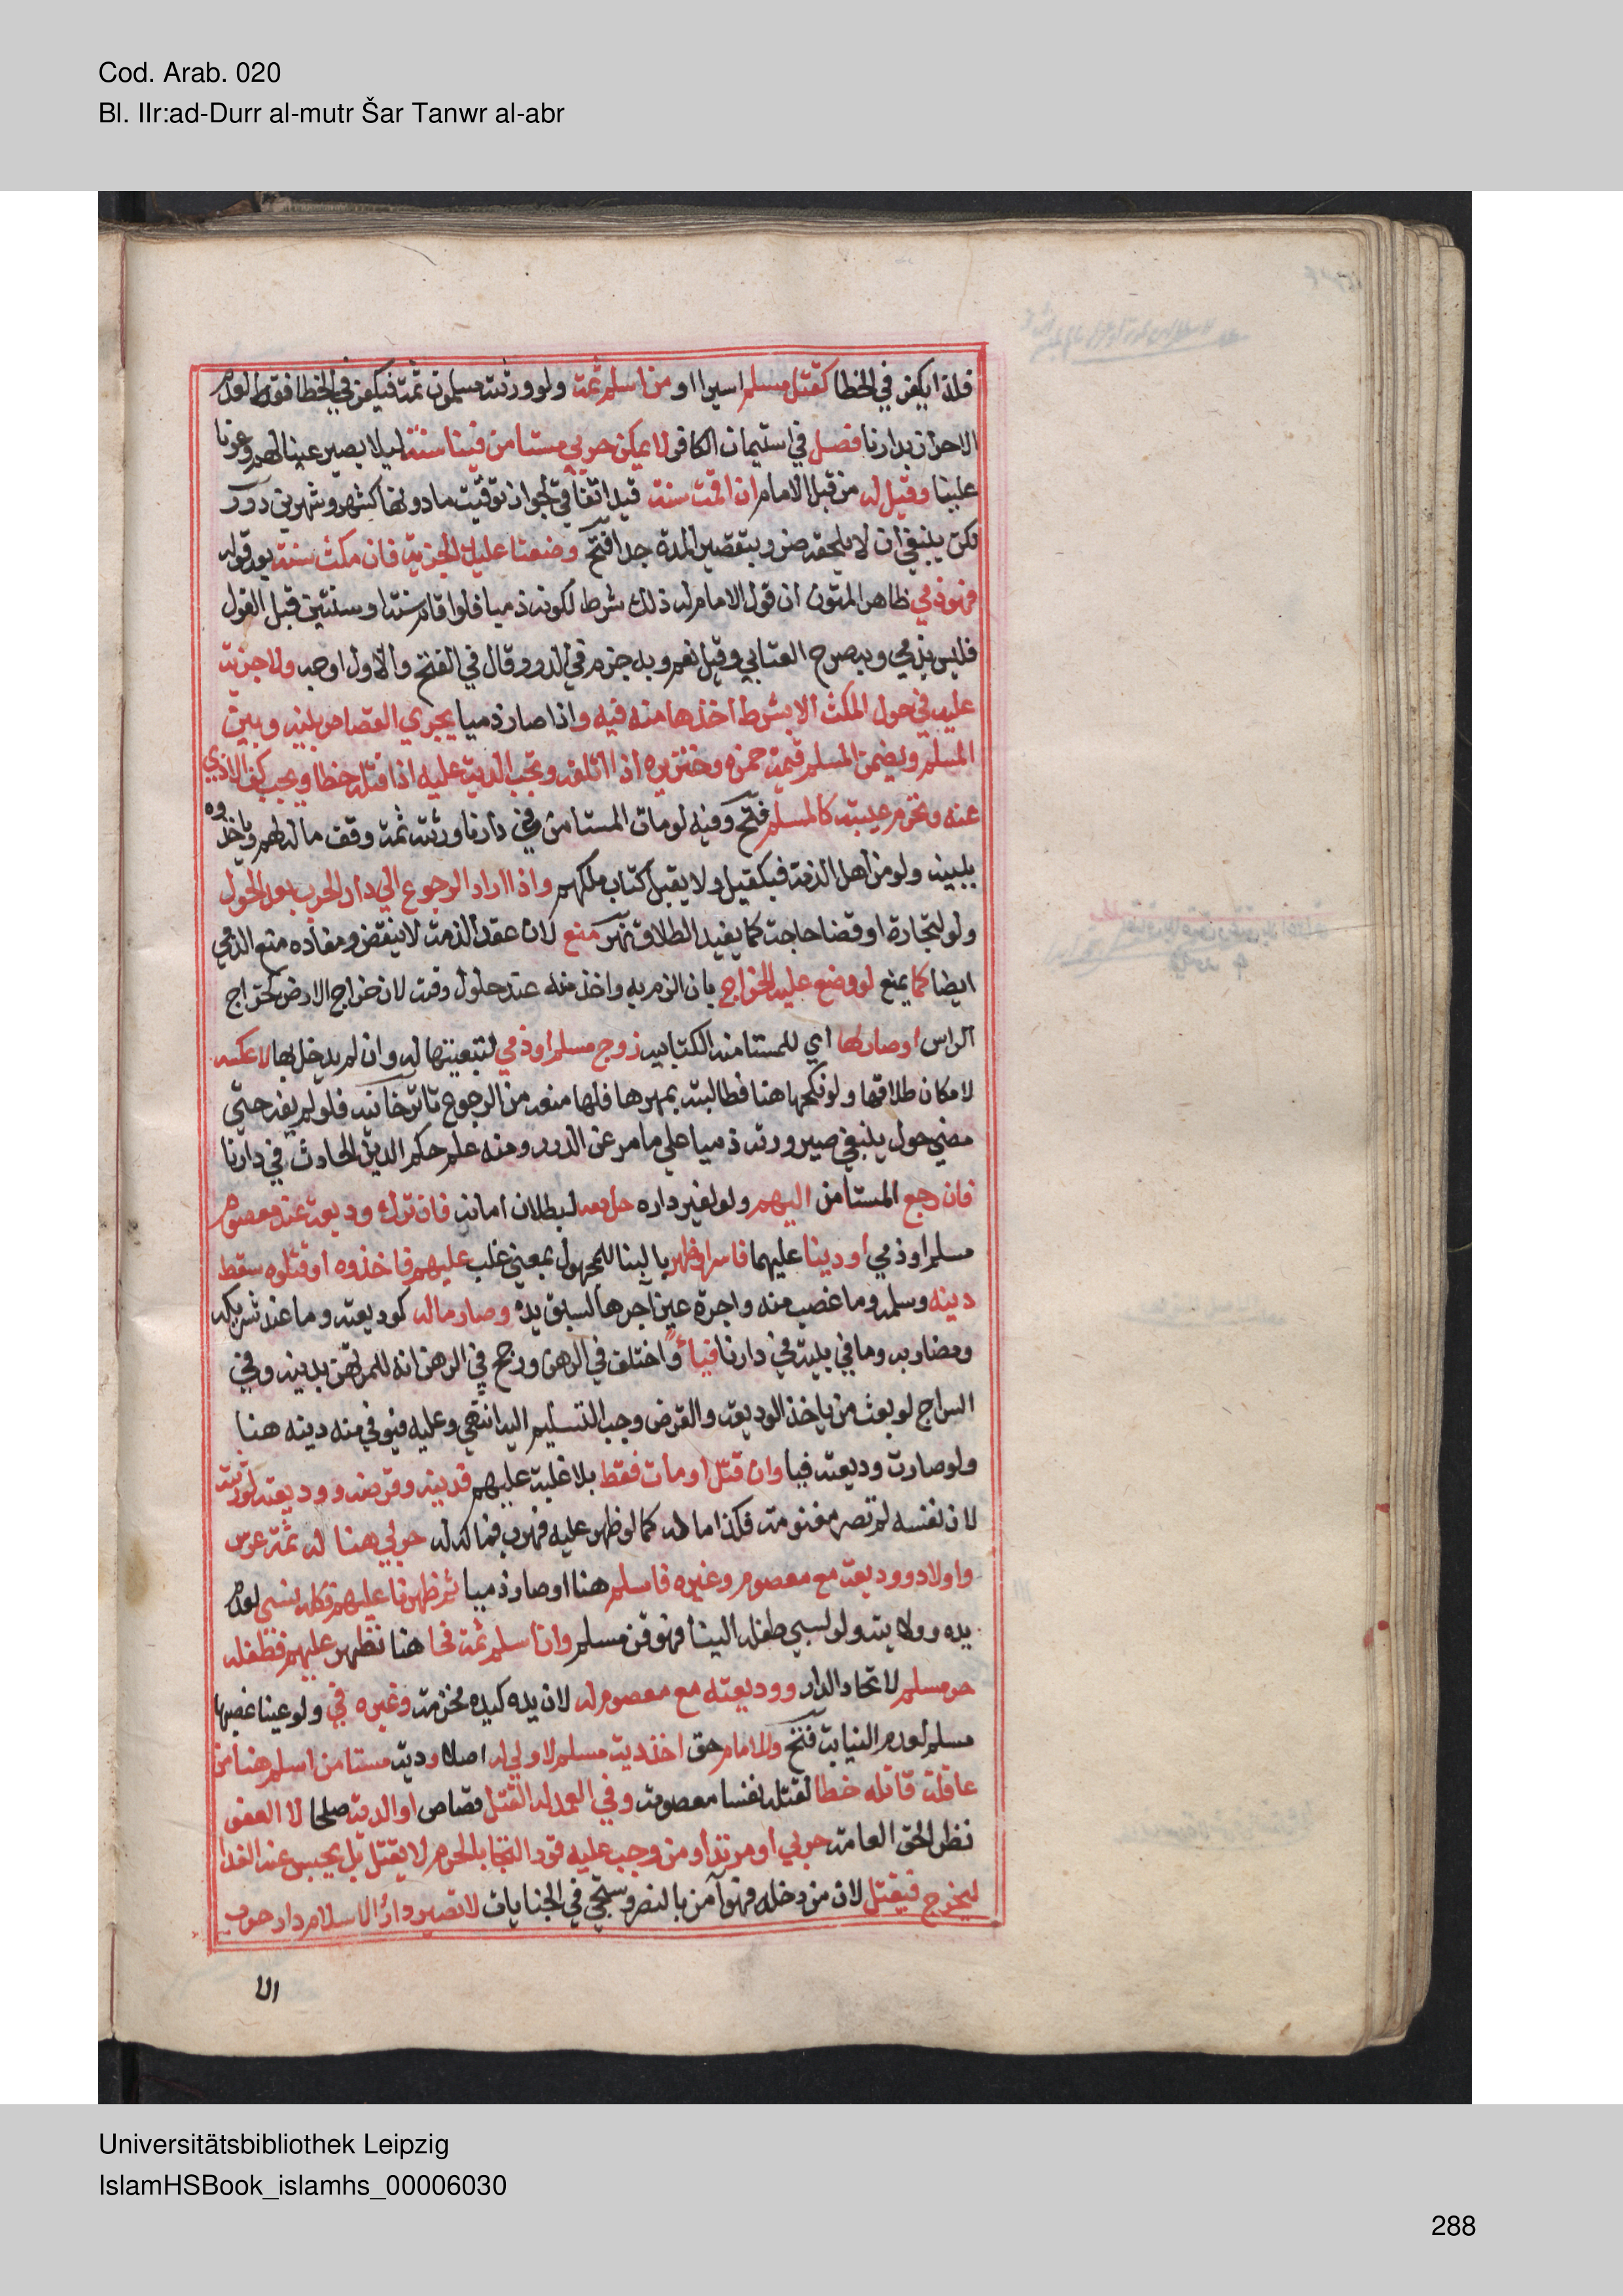 Cod. Arab. 020
Bl. IIr:ad-Durr al-mutr Šar Tanwr al-abr
فلذا يكفر في الخطا كقتل مسلم اسيرا او من اسلم ثمة ولو ورثته مسلمون ثمة فيكفر في الخطا فقط لعدم
الاحراز بدارنا فصل في استيمان الكافر لا يمكن حربي مستامن فينا سنة ليلا يصير عينا لهم وعونا
علينا وقيل له من قبل الامام ان اقمت سنة قيد اتفاقي لجواز توقيت ما دونها كشهر وشهرين درر
لكن ينبغي ان لا يلحقه ضرر بتقصير المدة جدا فتح وضعنا عليك الجزية فان مكث سنة بعد قوله
فهو ذمي ظاهر المتون ان قول الامام له ذلك شرط لكونه ذميا فلو اقام سنة او سنتين قبل القول
فليس بذمي وبه صرح العتابي وقيل نعم وبه جزم في الدرر وقال في الفتح والاول اوجه ولا جزية
عليه في حول المكث الا بشرط اخذها منه فيه واذا صار ذميا يجري القصاص بينه وبين
المسلم ويضمن المسلم قيمة خمره وخنزيره اذا اتلفه وتجب الدية عليه اذا قتله خطا ويجب كف الاذي
عنه وتحرم غيبته كالمسلم فتح وفيه لومات المستامن في دارنا وورثته ثمة وقف ماله لهم وياخذوه
ببينة ولو من اهل الذمة فبكفيل ولا يقبل كتاب ملكهم واذا اراد الرجوع الي دار الحرب بعد الحول
ولو لتجارة او قضا حاجة كما يفيد الطلاق نهر منع لان عقد الذمة لا ينقض ومفاده منع الذمي
ايضا كما يمنع لو وضع عليه الخراج بان الزم به واخذ منه عند حلول وقته لان خراج الارض كخراج
الراس او صار لها اي للمستامنة الكتابيه زوج مسلم او ذمي لتبعيتها له وان لم يدخل بها لا عكسه
لا مكان طلاقها ولو نكحها هنا فطالبته بمهرها فلها منعه من الرجوع تاترخانيه فلو لم يفه حتي
مضي حول ينبغي صيرورته ذميا علي ما مر عن الدرر ومنه علم حكم الدين الحادث في دارنا
فان رجع المستامن اليهم ولو لغير داره حل دمه لبطلان امانه فان ترك وديعة عند معصوم
مسلم او ذمي او دينا عليهما فاسر او ظهر بالبنا للمجهول بمعني غلب عليهم فاخذوه او قتلوه سقط
دينه وسلمه وما غصب منه واجرة عين آجرها لسبق يده وصار ماله كوديعته وما عند شريكه
ومضاربه وما في بيته في دارنا فيأ واختلف في الرهن ورجح في الرهن انه للمرتهن بدينه وفي
السراج لو بعث من ياخذ الوديعة والقرض وجب التسليم اليه انتهي وعليه فيوفي منه دينه هنا
ولو صارت وديعته فيا وان قتل او مات فقط بلا غلبة عليهم فدينه وقرضه ووديعته لورثته
لان نفسه لم تصر مغنومة فكذا ماله كما لو ظهر عليه فهرب فماله له حربي هنا له ثمة عرس
واولاد ووديعة مع معصوم وغيره فاسلم هنا او صار ذميا ثم ظهرنا عليهم فكله فيئ لعدم
يده وولايته ولو لسبي طفله الينا فهو قن مسلم وان اسلم ثمة فجا هنا فظهر عليهم فطفله
حر مسلم لاتحاد الدار ووديعته مع معصوم له لان يده كيده محترمة وغيره في ولو عينا غصبها
مسلم لعدم النيابة فتح وللامام حق اخذ دية مسلم لا ولي له اصلا ودية مستامن اسلم هنا من
عاقلة قاتله خطا لقتله نفسا معصومة وفي العمد له القتل قصاص او الدية صلحا لا العفو
نظرا لحق العامة حربي او مرتد او من وجب عليه قود التجا بالحرم لا يقتل بل يحبس عنه الغذا
ليخرج فيقتل لان من دخله فهو آمن بالنص وسيجي في الجنايات لا تصير دار الاسلام دار حرب
الا
Universitätsbibliothek Leipzig
IslamHSBook_islamhs_00006030
288